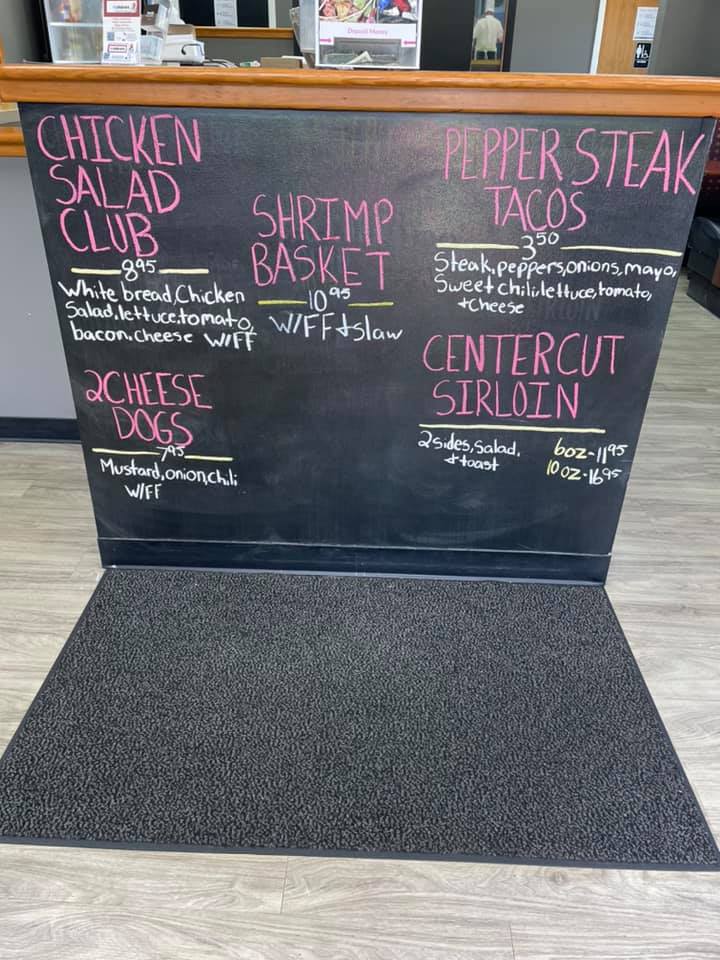 Deposit Money
CHICKEN
SALAD
CLUB
8.95
White bread, Chicken
Salad, lettuce, tomato,
bacon, cheese W/FF
2 CHEESE
DOGS
7.95
Mustard, onion, chili
W/FF
SHRIMP
BASKET
10.95
W/FF & Slaw
PEPPER STEAK
TACOS
3.50
Steak, peppers, onions, mayo,
Sweet chili, lettuce, tomato,
& cheese
CENTERCUT
SIRLOIN
2 sides, salad,
& toast
6oz - 11.95
10 oz - 16.95